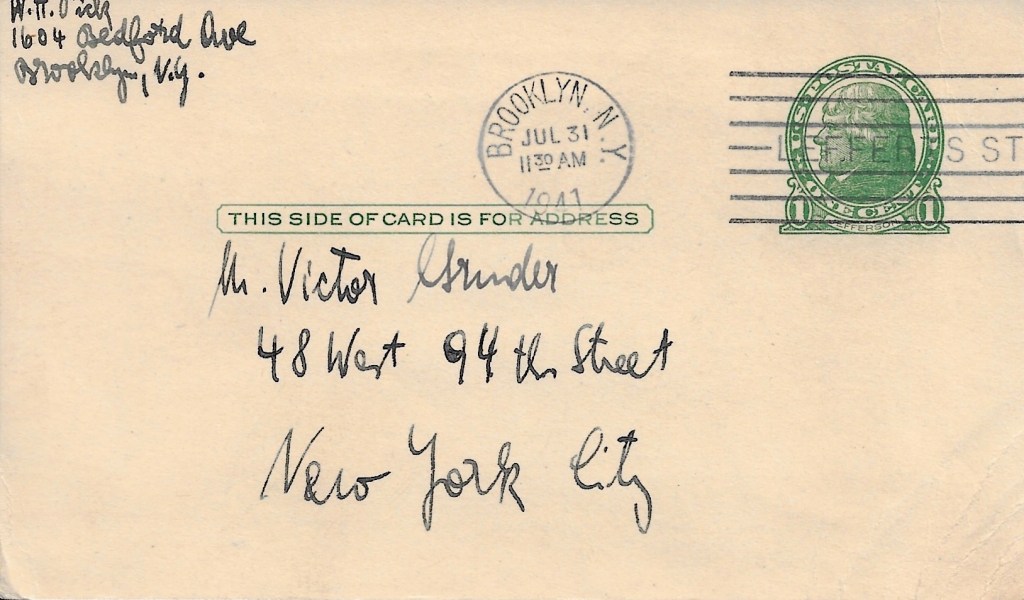 W. H.
1604 Bedford Ave
Brooklyn, N.Y.
BROOKLYN, N.Y.
JUL 31
11 30 AM
1941
U.S. POSTAL CARD
LEFFERTS ST
1 ONE CENT 1
JEFFERSON
THIS SIDE OF CARD IS FOR ADDRESS
M. Victor Gruder
48 West 94 th Street
New York City